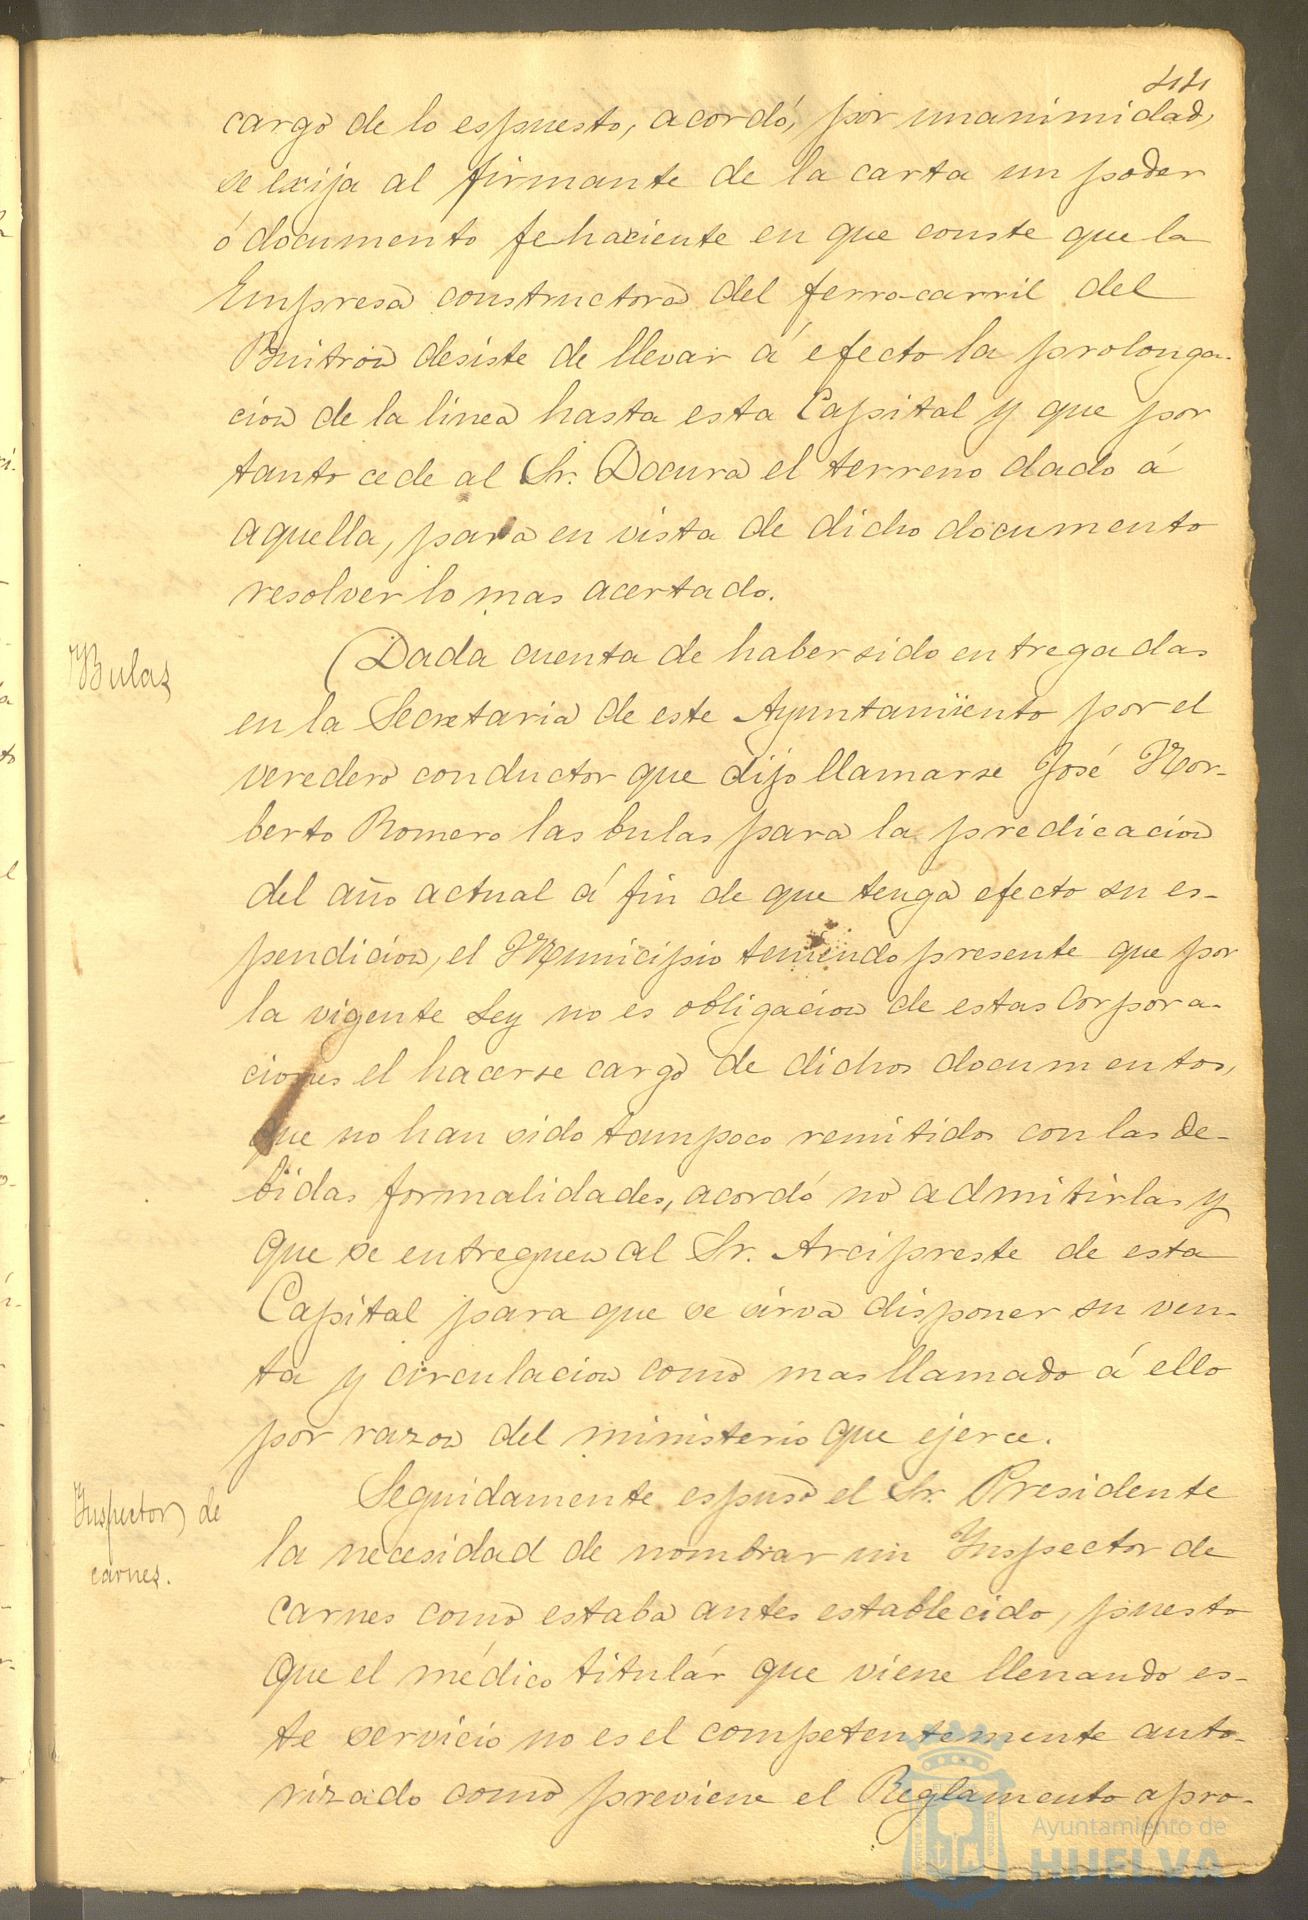 44
cargo de lo espuesto, acordó, por unanimidad,
se exija al firmante de la carta un poder
ó documento fehaciente en que conste que la
Empresa constructora del ferro-carril del
Buitron desiste de llevar á efecto la prolonga-
cion de la linea hasta esta Capital y que por
tanto cede al Sr. Docura el terreno dado á
aquella, para en vista de dicho documento
resolver lo mas acertado.
Bulas
Dada cuenta de haber sido entregadas
en la Secretaria de este Ayuntamiento por el
veredero conductor que dijo llamarse José Nor-
berto Romero las bulas para la predicacion
del año actual á fin de que tenga efecto su es-
pendicion, el Municipio teniendo presente que por
la vigente Ley no es obligacion de estas Corpora-
ciones el hacerse cargo de dichos documentos,
que no han sido tampoco remitidos con las de-
bidas formalidades, acordó no admitirlas y
que se entreguen al Sr. Arcipreste de esta
Capital para que se sirva disponer su ven-
ta y circulacion como mas llamado á ello
por razon del ministerio que ejerce.
Inspector de
carnes.
Seguidamente espuso el Sr. Presidente
la necesidad de nombrar un Inspector de
carnes como estaba antes establecido, puesto
que el médico titulár que viene llenando es-
te servicio no es el competentemente auto-
rizado como previene el Reglamento apro-
Ayuntamiento de
HUELVA